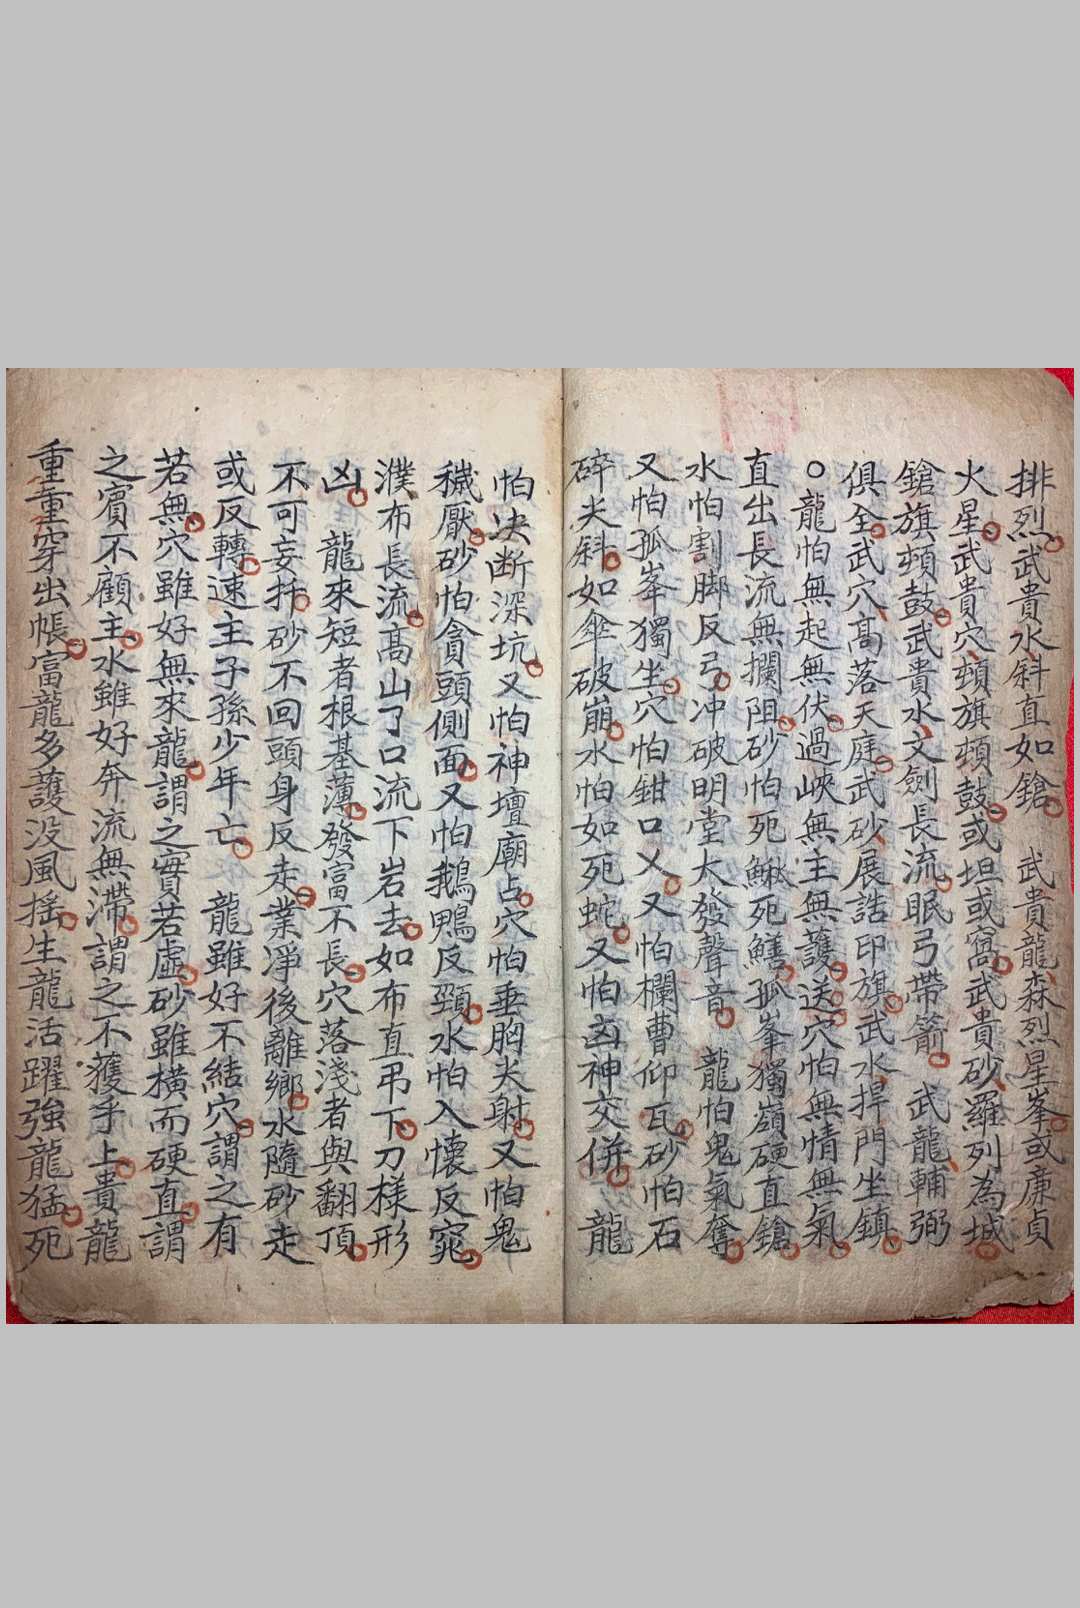 排烈武貴水斜直如鎗　武貴龍森烈星峯或廉貞
火星武貴穴頓旗頓鼓或坦或窩武貴砂羅列為城
鎗旗頓鼓武貴水文劍長流眠弓帶箭　武龍輔弼
俱全武穴高落天庭武砂展誥印旗武水捍門坐鎮
○龍怕無起無伏過峽無主無護送穴怕無情無氣
直出長流無攔阻砂怕死鰍死鱔孤峯獨嶺硬直鎗
水怕割脚反弓冲破明堂大發聲音　龍怕鬼氣奪
又怕孤峯獨坐穴怕鉗口乂又怕欄曹仰瓦砂怕石
碎尖斜如傘破崩水怕如死蛇又怕凶神交併　龍
怕决断深坑又怕神壇廟占穴怕垂胸尖射又怕鬼
穢厭砂怕貪頭側面又怕鵝鴨反頸水怕入懷反窕
濮布長流高山了口流下岩去如布直弔下刀樣形
凶　龍來短者根基薄發富不長穴落淺者與翻頂
不可妄扦砂不回頭身反走業凈後離鄉水隨砂走
或反轉速主子孫少年亡　龍雖好不結穴謂之有
若無穴雖好無來龍謂之實若虛砂雖橫而硬直謂
之賓不顧主水雖好奔流無滯謂之不獲乎上貴龍
重重穿出帳富龍多護没風搖生龍活躍強龍猛死